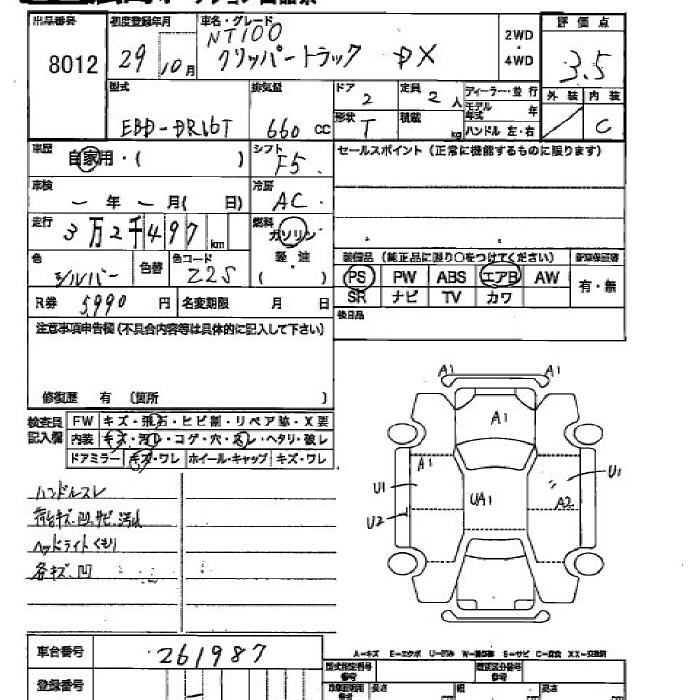 出品番号 8012
初度登録年月 29 10月
車名・グレード NT100
クリッパートラック DX
2WD
・
4WD
評価点 3.5
型式 EBD-DR16T
排気量 660 cc
ドア 2
定員 2 人
ディーラー・並行
モデル年式 年
形状 T
積載 kg
ハンドル 左・右
外装 内装
C
車歴 自家用・( )
シフト F5
セールスポイント (正常に機能するものに限ります)
車検 － 年 － 月( 日)
冷房 AC
走行 3万2千497 km
燃料 ガソリン
軽・油
( )
色 シルバー
色替
色コード Z2S
装備品 (純正品に限り○をつけてください)
新車保証書
PS PW ABS エアB AW
有・無
SR ナビ TV カワ
R券 5,990 円
名変期限 月 日
後日品
注意事項申告欄(不具合内容等は具体的に記入して下さい)
修復歴 有 〔箇所 〕
検査員記入欄
FW キズ・飛石・ヒビ割・リペア跡・X要
内装 キズ・汚レ・コゲ・穴・スレ・ヘタリ・破レ
ドアミラー キズ・ワレ ホイール・キャップ キズ・ワレ
ハンドルスレ
荷台キズ.凹.サビ.汚れ
ヘッドライトくもり
各キズ.凹
A1 A1
A1
A1
U1 U1
UA1
A2
U2
車台番号 261987
A-キズ E-エクボ U-凹み
登録番号
型式指定番号
類別区分番号
長さ
幅
高さ